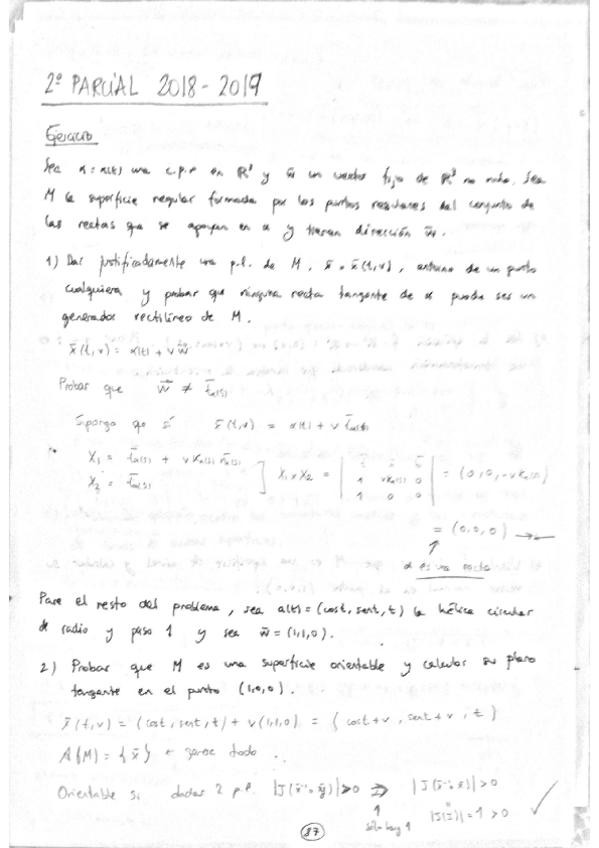 2º PARCIAL 2018-2019
Ejercicio
Sea α = α(t) una c.p.r en R³ y w̄ un vector fijo de R³ no nulo. Sea
M la superficie regular formada por los puntos regulares del conjunto de
las rectas que se apoyan en α y tienen dirección w̄.
1) Dar justificadamente una p.l. de M, x̄ = x̄(t,v), entorno de un punto
cualquiera y probar que ninguna recta tangente de α puede ser un
generador rectilíneo de M.
x̄(t,v) = α(t) + v w̄
Probar que w̄ ≠ t̄α(s)
Supongo que sí x̄(t,v) = α(t) + v t̄α(s)
X₁ = t̄α(s) + v kα(s) n̄α(s)
X₂ = t̄α(s)
] X₁ × X₂ = | 1 vkα(s) 0 | = (0,0,-vkα(s))
| 1 0 0 |
= (0,0,0)
↑
α es una recta
Para el resto del problema, sea α(t) = (cost, sent, t) la hélice circular
de radio y paso 1 y sea w̄ = (1,1,0).
2) Probar que M es una superficie orientable y calcular su plano
tangente en el punto (1,0,0).
x̄(t,v) = (cost, sent, t) + v(1,1,0) = (cost+v, sent+v, t)
A(M) = {x̄}
Orientable si dadas 2 p.l. |J(x̄⁻¹∘ȳ)| > 0 ⇒ |J(x̄⁻¹∘x̄)| > 0
↑
sólo hay 1
|J(I)| = 1 > 0 ✓
87